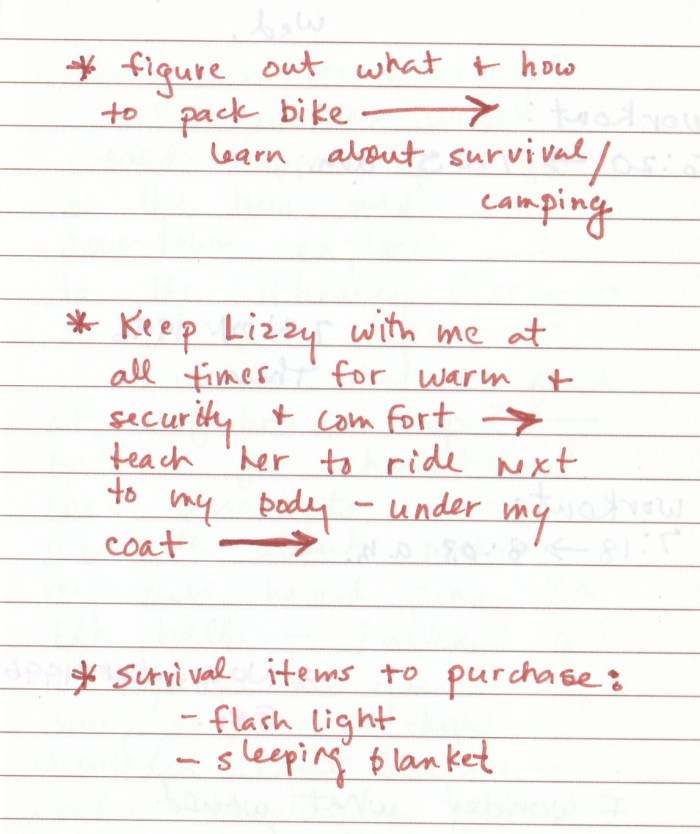 * figure out what + how
to pack bike →
learn about survival/
camping
* Keep Lizzy with me at
all times for warm +
security + comfort →
teach her to ride next
to my body - under my
coat →
* Survival items to purchase:
- flash light
- sleeping blanket